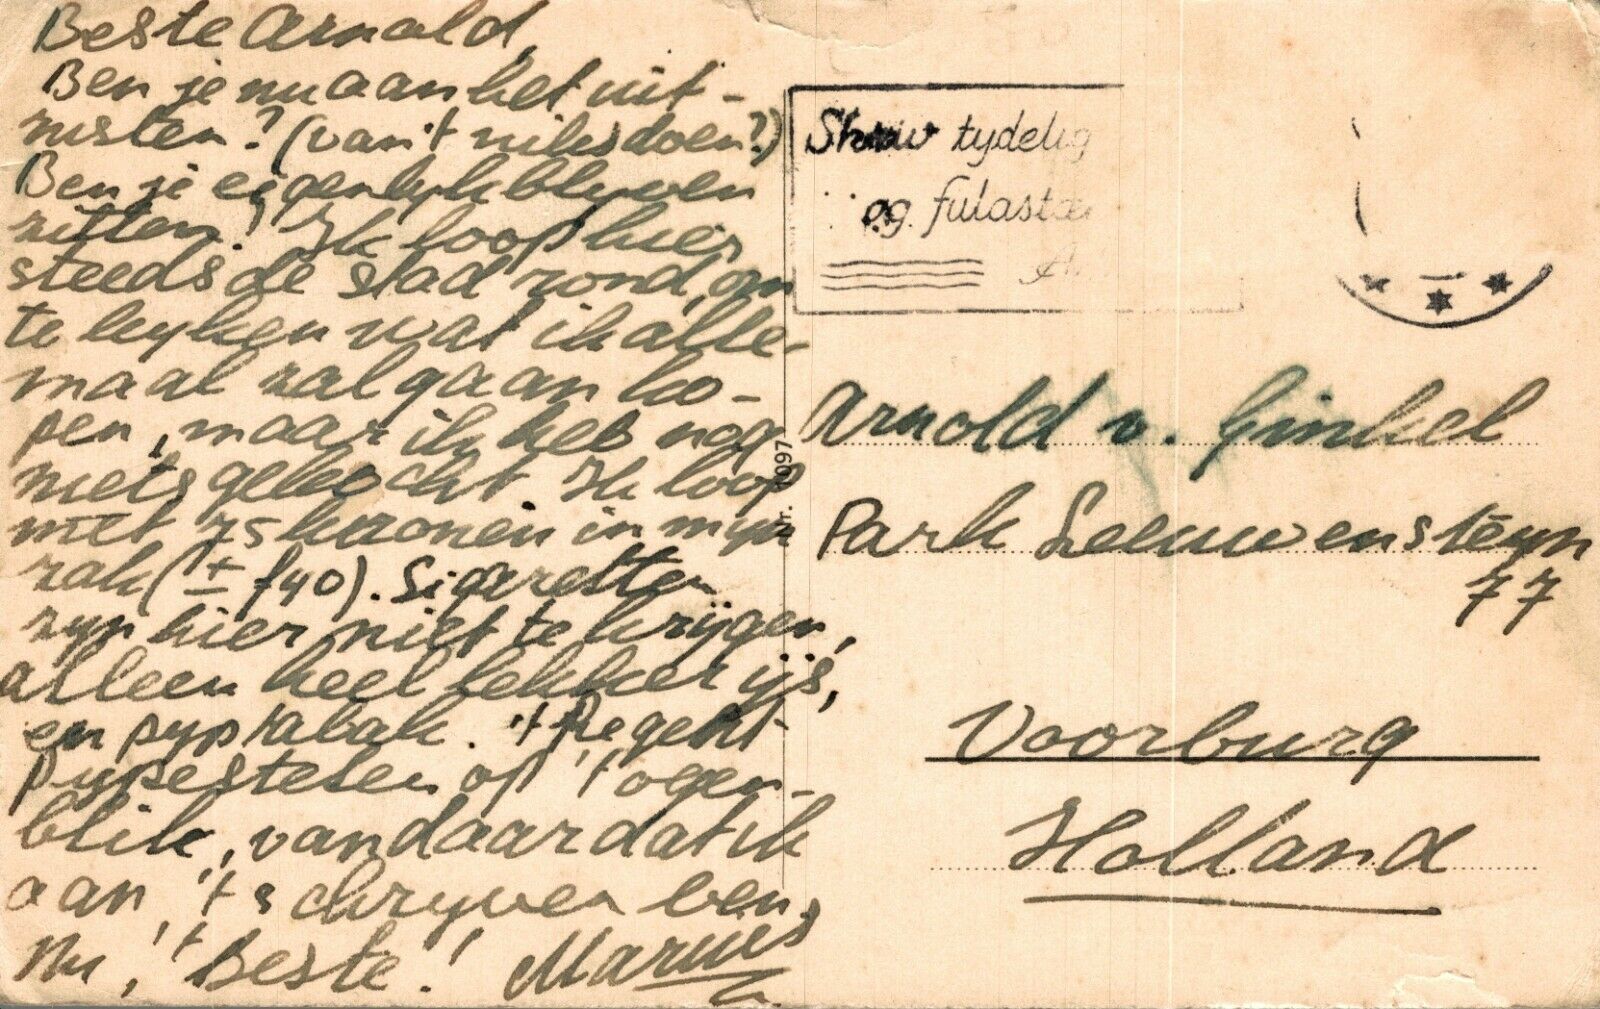 Beste Arnold,
Ben je nu aan het uit-
rusten? (van 't niks doen?)
Ben je eigenlyk blyven
zitten? Ik loop hier
steeds de stad rond, om
te kyken wat ik alle-
maal zal gaan ko-
pen, maar ik heb nog
niets gekocht. Ik loop
met 75 kronen in myn
zak (± f 40). Sigaretten
zyn hier niet te krijgen,
alleen heel lekker ijs,
en pyptabak. 't Regent
pypestelen op 't ogen-
blik, vandaar dat ik
aan 't schryven ben.
Nu, 't Beste!
Skriv tydelig
og fuldstæ
7607
Arnold v. Ginkel
Park Leeuwensteyn
77
Voorburg
Holland